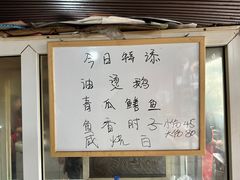 今日特添
油烫鹅
青瓜鳝鱼
鱼香肘子 小份45
大份80
咸烧白